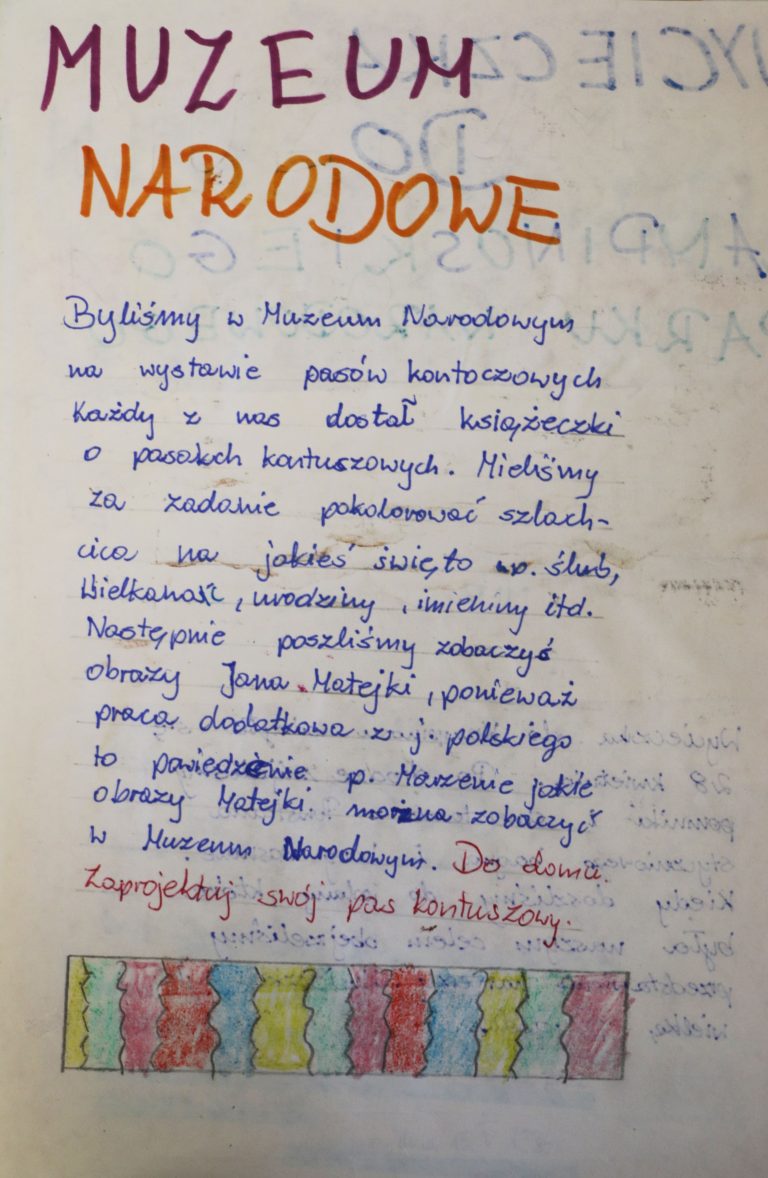 MUZEUM
NARODOWE
Byliśmy w Muzeum Narodowym
na wystawie pasów kontoczowych
Każdy z nas dostał książeczki
o pasach kontuszowych. Mieliśmy
za zadanie pokolorować szlach-
cica na jakieś święto np. ślub,
Wielkanoc, urodziny, imieniny itd.
Następnie poszliśmy zobaczyć
obrazy Jana Matejki, ponieważ
praca dodatkowa z j. polskiego
to powiedzenie p. Marzenie jakie
obrazy Matejki można zobaczyć
w Muzeum Narodowym. Do domu.
Zaprojektuj swój pas kontuszowy.